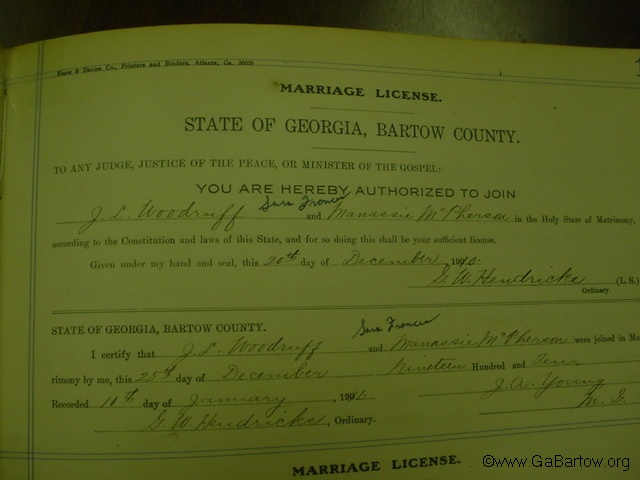 Foote & Davies Co., Printers and Binders, Atlanta, Ga.
MARRIAGE LICENSE.
STATE OF GEORGIA, BARTOW COUNTY.
TO ANY JUDGE, JUSTICE OF THE PEACE, OR MINISTER OF THE GOSPEL:
YOU ARE HEREBY AUTHORIZED TO JOIN
Sara Frances
J. L. Woodruff and Manassie McPherson in the Holy State of Matrimony,
according to the Constitution and laws of this State, and for so doing this shall be your sufficient license.
Given under my hand and seal, this 20th day of December, 1910.
G. W. Hendricks (L. S.)
Ordinary.
STATE OF GEORGIA, BARTOW COUNTY.
Sara Frances
I certify that J. L. Woodruff and Manassie McPherson were joined in Ma
rimony by me, this 25th day of December Nineteen Hundred and Tenn
Recorded 10th day of January, 1911. J. A. Young
G. W. Hendricks, Ordinary. M. G.
MARRIAGE LICENSE.
©www.GaBartow.org